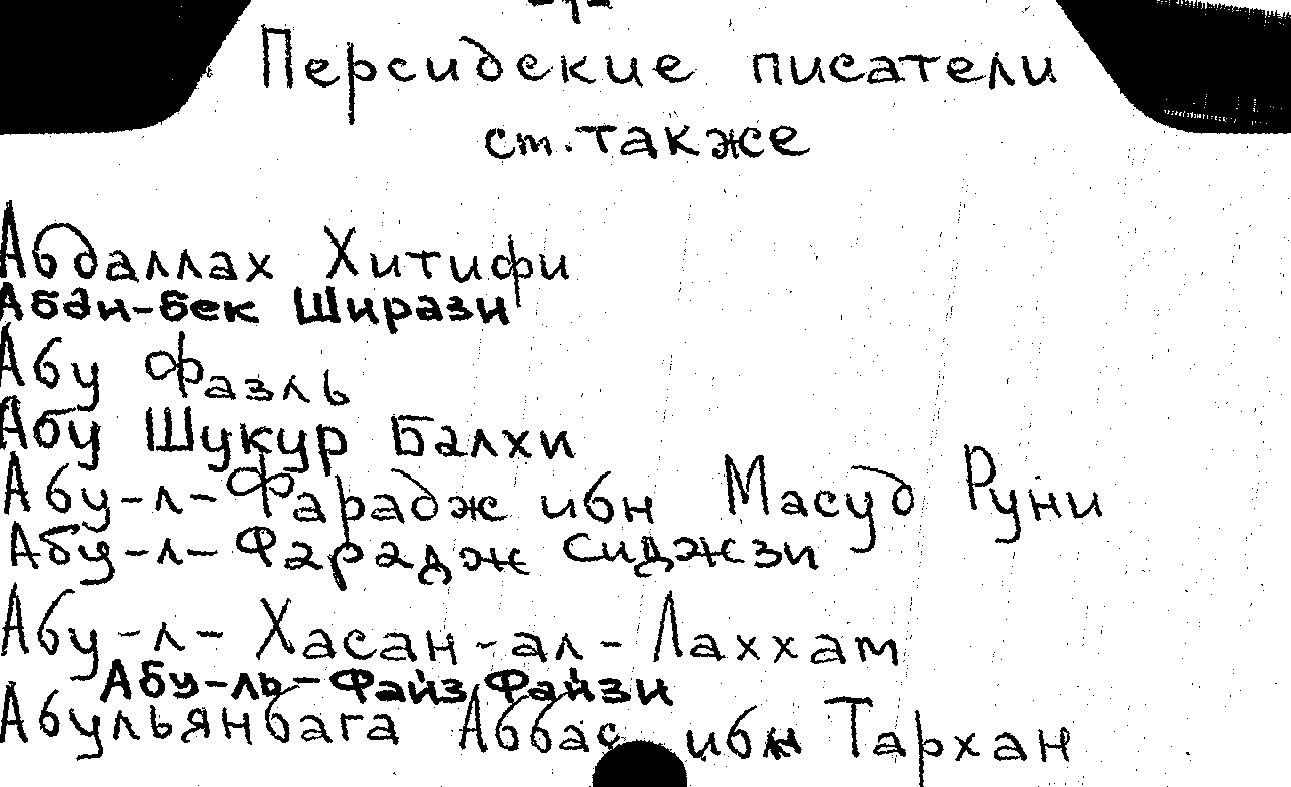 -1-
Персидские писатели
ст. также
Абдаллах Хитифи
Абди-бек Ширази
Абу Фазль
Абу Шукур Балхи
Абу-л-Фарадж ибн Масуд Руни
Абу-л-Фарадж Сиджзи
Абу-л-Хасан-ал-Лаххам
Абу-ль-Файз Файзи
Абульянбага Аббас ибн Тархан